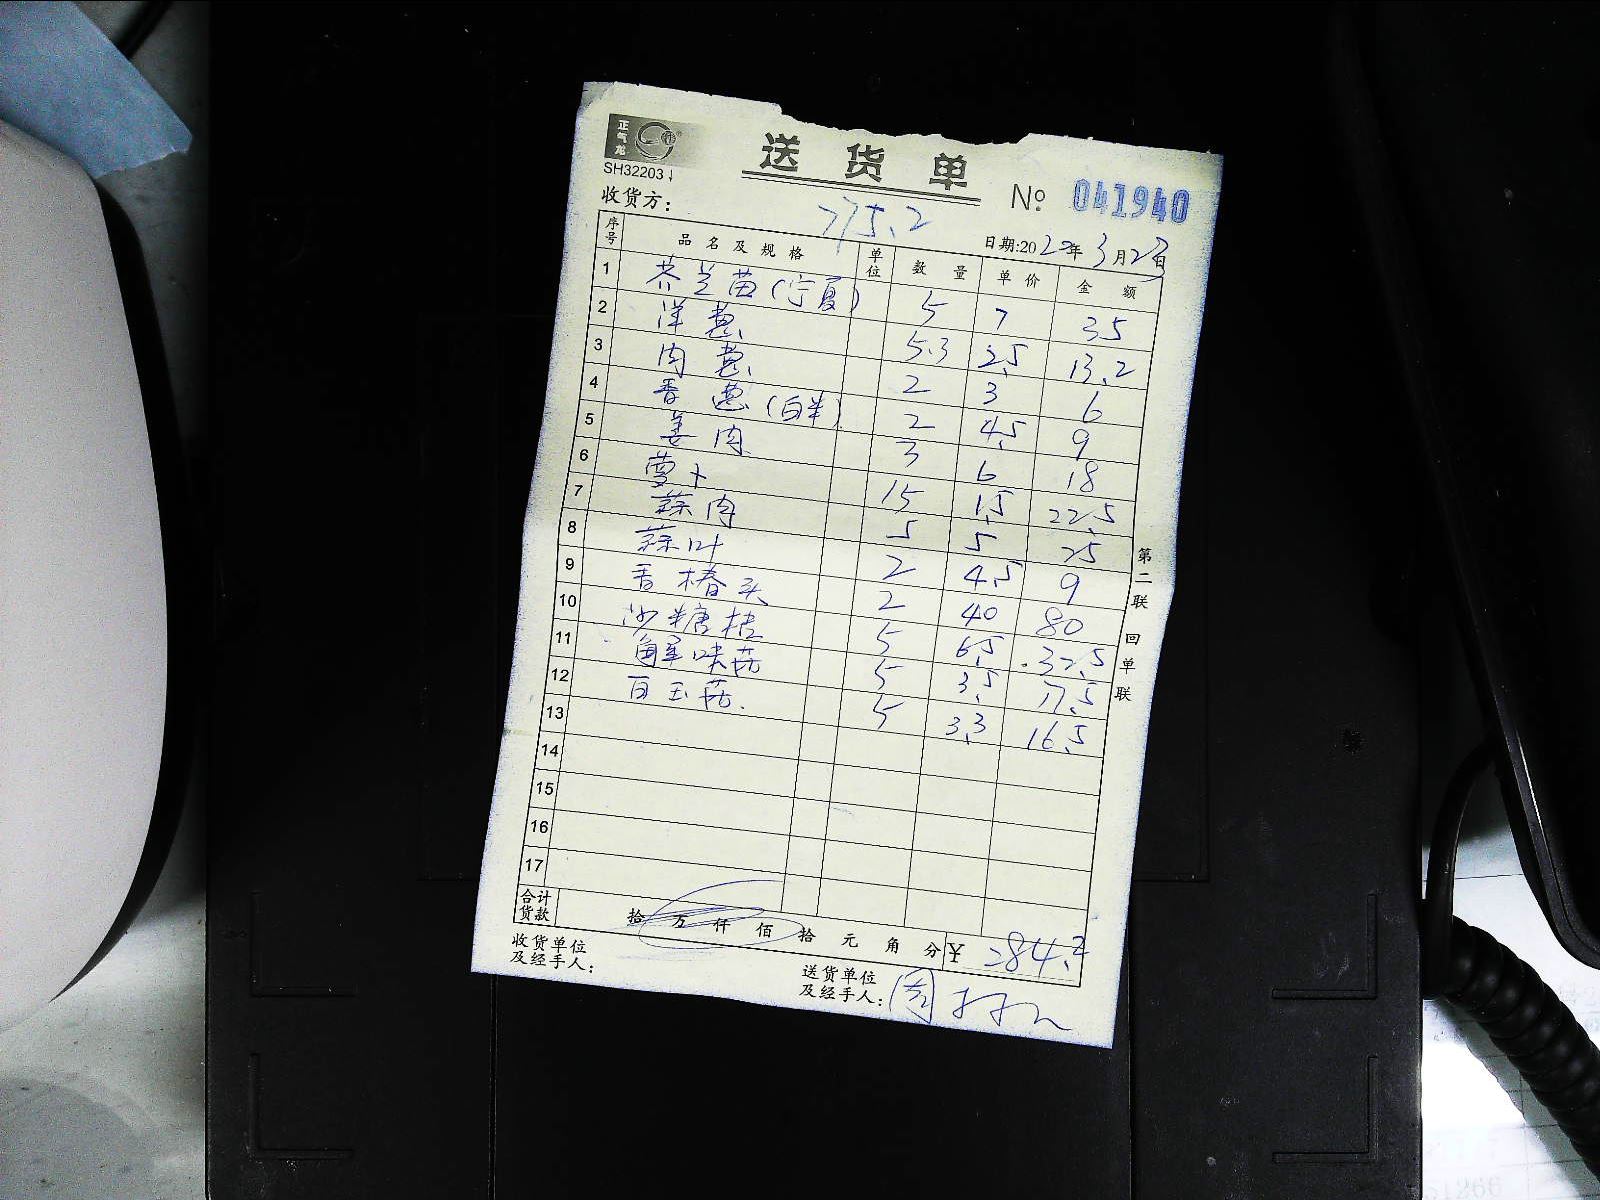 正气龙
送货单
SH32203
No 041940
收货方:
775.2
日期:2022年3月23日
序号 品名及规格 单位 数量 单价 金额
1 芥兰苗(宁夏) 5 7 35
2 洋葱 5.3 2.5 13.2
3 肉葱 2 3 6
4 香葱(白半) 2 4.5 9
5 姜肉 3 6 18
6 萝卜 15 1.5 22.5
7 蒜肉 5 5 25
8 蒜叶 2 4.5 9
9 香椿头 2 40 80
10 沙糖桔 5 6.5 32.5
11 蟹味菇 5 3.5 17.5
12 白玉菇 5 3.3 16.5
13
14
15
16
17
合计货款 拾 万 仟 佰 拾 元 角 分 ¥ 284.2
收货单位及经手人:
送货单位及经手人:
第二联 回单联